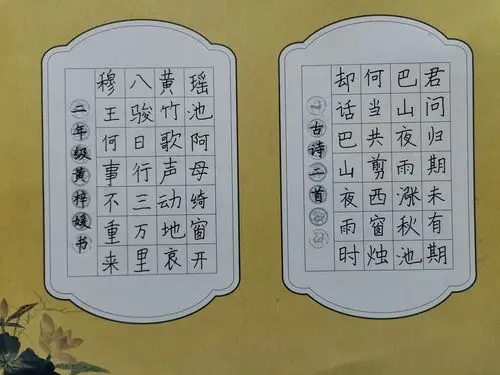 君问归期未有期
巴山夜雨涨秋池
何当共剪西窗烛
却话巴山夜雨时
古诗二首
瑶池阿母绮窗开
黄竹歌声动地哀
八骏日行三万里
穆王何事不重来
二年级黄梓媛书